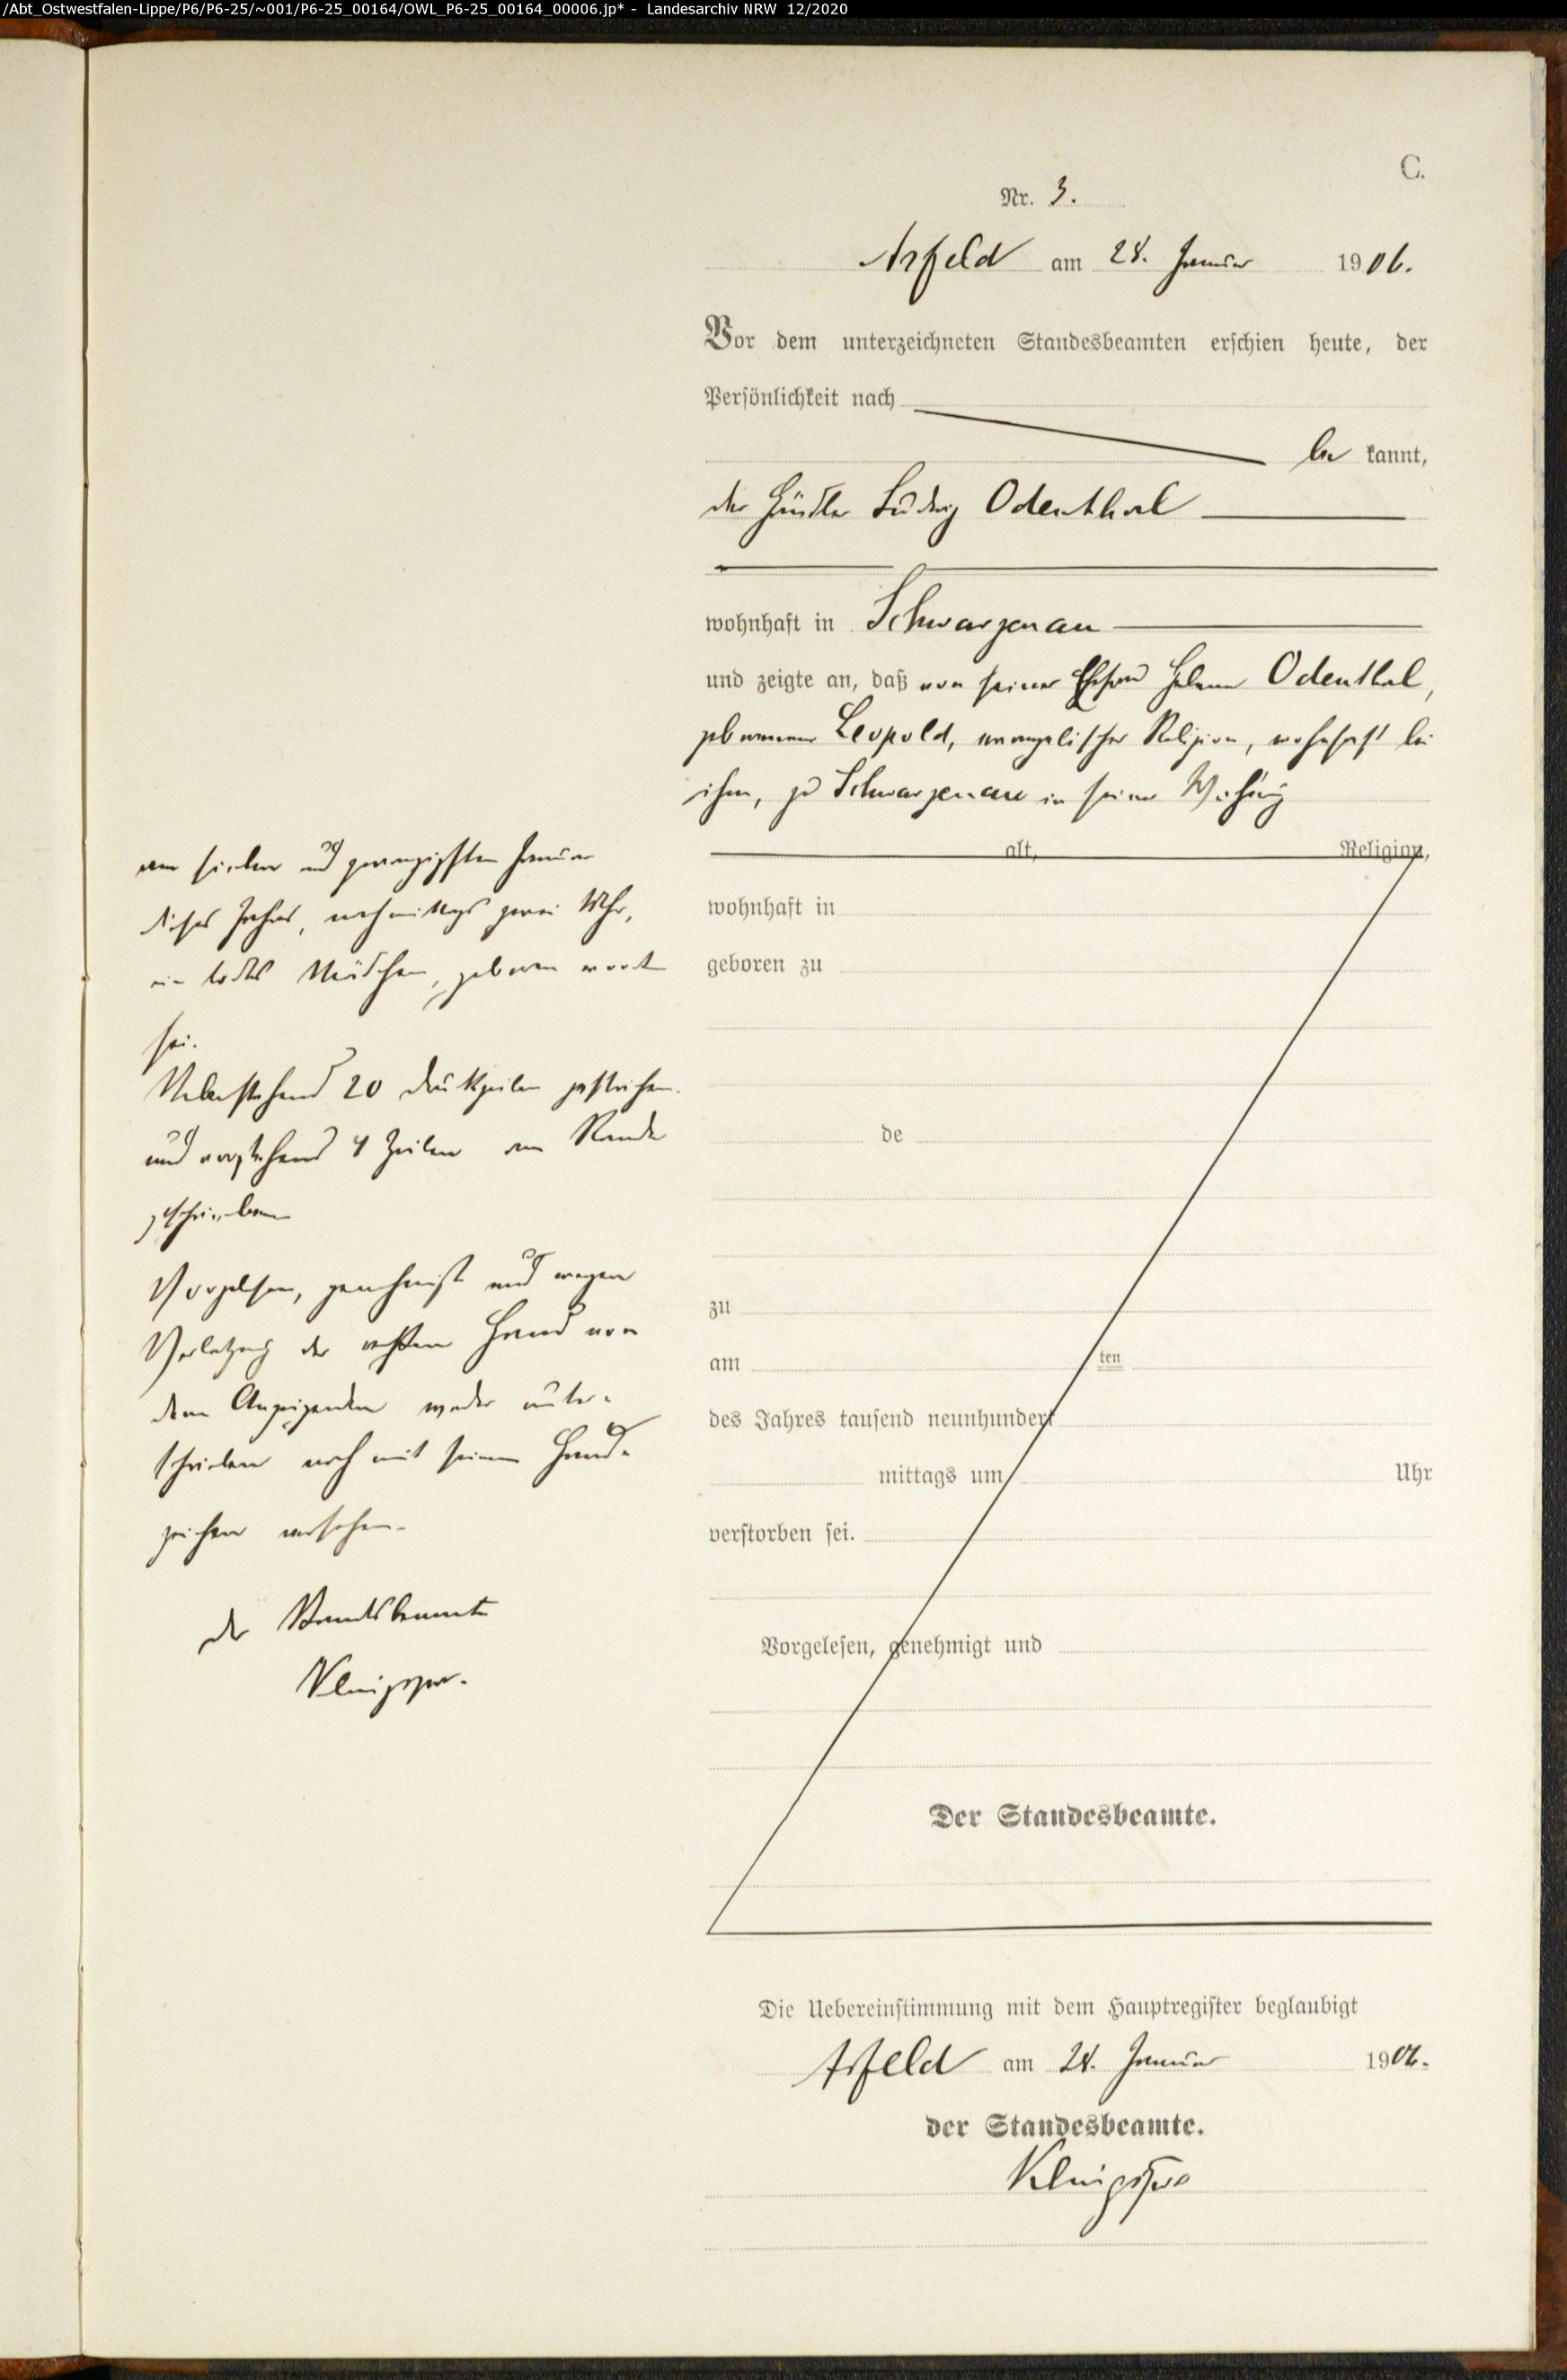 /Abt_Ostwestfalen-Lippe/P6/P6-25/~001/P6-25_00164/OWL_P6-25_00164_00006.jp* - Landesarchiv NRW 12/2020
C.
Nr. 3.
Arfeld am 28. Januar 1906.
Vor dem unterzeichneten Standesbeamten erschien heute, der
Persönlichkeit nach
be kannt,
der Händler Ludwig Odenthal
wohnhaft in Schwarzenau
und zeigte an, daß von seiner Ehefrau Helene Odenthal,
geborenen Leopold, evangelischer Religion, wohnhaft bei
ihm, zu Schwarzenau in seiner Wohnung
alt, Religion,
wohnhaft in
geboren zu
de
zu
am ten
des Jahres tausend neunhundert
mittags um Uhr
verstorben sei.
Vorgelesen, genehmigt und
Der Standesbeamte.
am sieben und zwanzigsten Januar
dieses Jahres, nachmittags zwei Uhr,
ein todtes Mädchen, geboren worden
sei.
Nebenstehend 20 Druckzeilen gestrichen
und vorstehend 4 Zeilen am Rande
geschrieben
Vorgelesen, genehmigt und wegen
Verletzung der rechten Hand von
dem Anzeigenden weder unter-
schrieben noch mit seinem Hand-
zeichen versehen.
Der Standesbeamte
Die Uebereinstimmung mit dem Hauptregister beglaubigt
Arfeld am 28. Januar 1906.
der Standesbeamte.